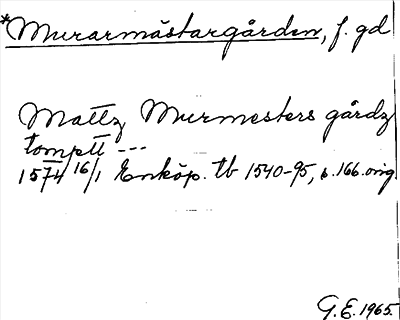 *Murarmästargården, f. gd
Mattz Murmesters gårdz
tomptt ---
1574 16/1 Enköp. tb 1540-95, s. 166. orig.
G.E. 1965.